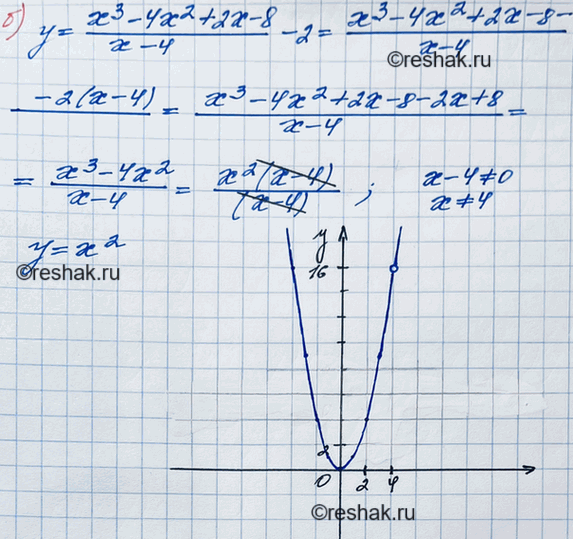 б) y = (x³-4x²+2x-8)/(x-4) - 2 = (x³-4x²+2x-8-)/(x-4)
©reshak.ru
(-2(x-4)) = (x³-4x²+2x-8-2x+8)/(x-4) =
= (x³-4x²)/(x-4) = (x²(x-4))/((x-4)) ; x-4≠0
x≠4
y=x²
©reshak.ru
y
16
2
0 2 4
©reshak.ru